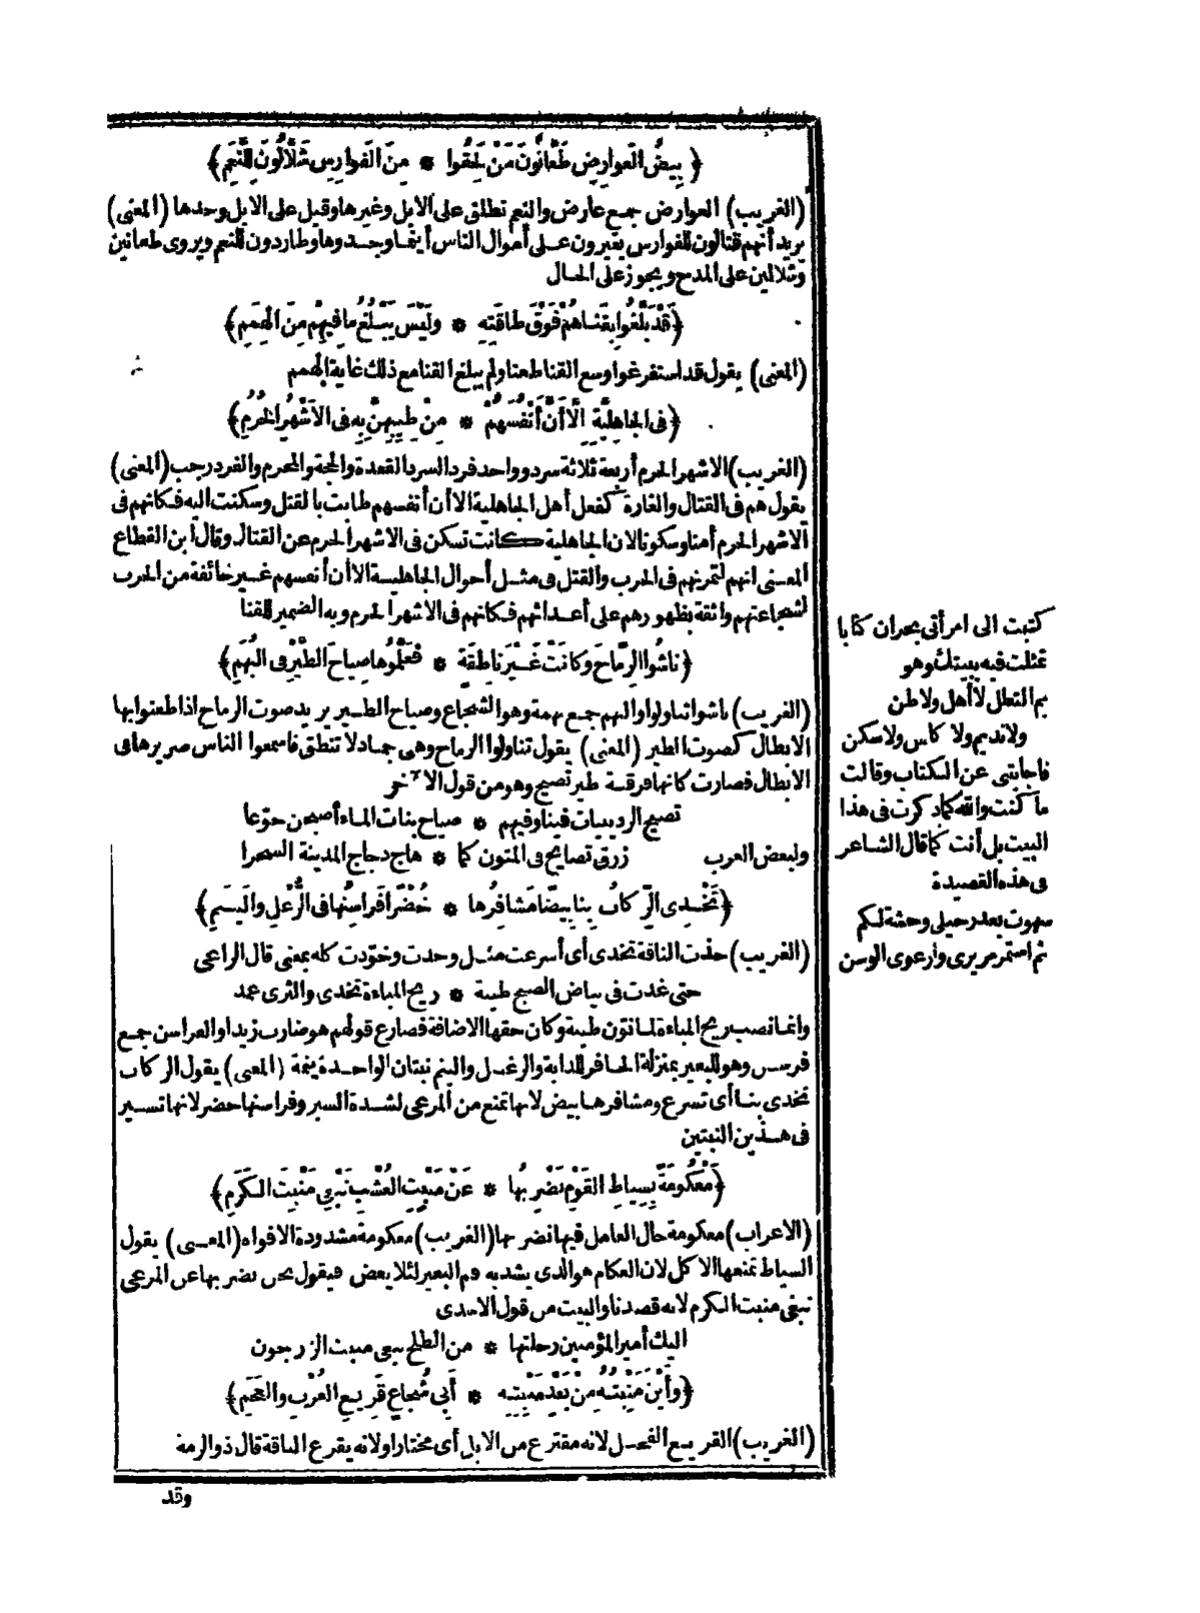 ﴿بِيضُ العَوارِضِ طَعَّانُونَ مَنْ لَحِقُوا * مِنَ الفَوارِسِ شَلَّالُونَ لِلنَّعَمِ﴾
(الغريب) العوارض جمع عارض والنعم تطلق على الابل وغيرها وقيل على الابل وحدها (المعنى)
يريد أنهم قتالون للفوارس يغيرون على أموال الناس أينما وجدوها وطاردون للنعم ويروى طعانين
وشلالين على المدح ويجوز على الحال
﴿قَدْ بَلَّغُوا بِقَناهُمْ فَوْقَ طاقَتِهِ * ولَيْسَ يَبْلُغُ ما فِيهِمْ مِنَ الهِمَمِ﴾
(المعنى) يقول قد استفرغوا وسع القنا طعنا ولم يبلغ القنا مع ذلك غاية الهمم
﴿فى الجاهِلِيَّةِ الَّا أَنَّ أَنْفُسَهُمْ * مِنْ طِيبِهِنَّ بِهِ فى الاَشْهُرِ الحُرُمِ﴾
(الغريب) الاشهر الحرم أربعة ثلاثة سرد وواحد فرد السرد القعدة والحجة والمحرم والفرد رجب (المعنى)
يقول هم فى القتال والغارة كفعل أهل الجاهلية الا أن أنفسهم طابت بالقتل وسكنت اليه فكانهم فى
الاشهر الحرم أمنا وسكونا لان الجاهلية كانت تسكن فى الاشهر الحرم عن القتال وقال ابن القطاع
المعنى انهم لتمرنهم فى الحرب والقتل فى مثل أحوال الجاهلية الا أن أنفسهم غير خائفة من الحرب
لشجاعتهم واثقة بظهورهم على أعدائهم فكانهم فى الاشهر الحرم وبه الضمير للقنا
﴿ناشُوا الرِّماحَ وكانَتْ غَيْرَ ناطِقَةٍ * فَعَلَّمُوها صِياحَ الطَّيْرِ فى البُهَمِ﴾
(الغريب) ناشوا تناولوا والبهم جمع بهمة وهو الشجاع وصياح الطير يريد صوت الرماح اذا طعنوا بها
الابطال كصوت الطير (المعنى) يقول تناولوا الرماح وهى جماد لا تنطق فاسمعوا الناس صريرها فى
الابطال فصارت كانها فرقة طير تصيح وهو من قول الآخر
تصيح الردينيات فينا وفيهم * صياح بنات الماء أصبحن جوّعا
ولبعض العرب زرق تصايح فى المتون كما * هاج دجاج المدينة السحرا
﴿تَخْدِى الرِّكابُ بِنا بِيضًا مَشافِرُها * خُضْرًا فَراسِنُها فى الرُّغْلِ واليَنَمِ﴾
(الغريب) خذت الناقة تخدى أى أسرعت مثل وخدت وخوّدت كله بمعنى قال الراعى
حتى غدت فى بياض الصبح طيبة * ريح المباءة تخدى والثرى عمد
وانما نصب ريح المباءة لما نون طيبة وكان حقها الاضافة فصار ع قولهم هو ضارب زيدا والفراسن جمع
فرسن وهو للبعير بمنزلة الحافر للدابة والرغل والينم نبتان الواحدة ينمة (المعنى) يقول الركاب
تخدى بنا أى تسرع ومشافرها بيض لانها تمنع من المرعى لشدة السير وفراسنها خضر لانها تسير
فى هذين النبتين
﴿مَعْكُومَةً بِسِياطِ القَوْمِ نَضْرِبُها * عَنْ مَنْبِتِ العُشْبِ نَبْغِى مَنْبِتَ الكَرَمِ﴾
(الاعراب) معكومة حال العامل فيها نضربها (الغريب) معكومة مشدودة الافواه (المعنى) يقول
السياط تمنعها الاكل لان العكام هو الذى يشد به فم البعير لئلا يعض فيقول نحن نضربها عن المرعى
نبغى منبت الكرم لانه قصدنا والبيت من قول الاسدى
اليك أمير المؤمنين رحلتها * من الطلح تبغى منبت الزرجون
﴿وأَيْنَ مَنْبِتُهُ مِنْ بَعْدِ مَنْبِتِهِ * أَبِى شُجاعٍ قَرِيعِ العُرْبِ والعَجَمِ﴾
(الغريب) القريع الفحل لانه مقترع من الابل أى مختار او لانه يقرع الناقة قال ذو الرمة
وقد
كتبت الى امرأتى بحران كتابا
تمثلت فيه ببيتك وهو
بم التعلل لا أهل ولا وطن
ولا نديم ولا كاس ولا سكن
فاجابتنى عن الكتاب وقالت
ما كنت والله كما ذكرت فى هذا
البيت بل أنت كما قال الشاعر
فى هذه القصيدة
سهرت بعد رحيلى وحشة لكم
ثم استمر مريرى وارعوى الوسن